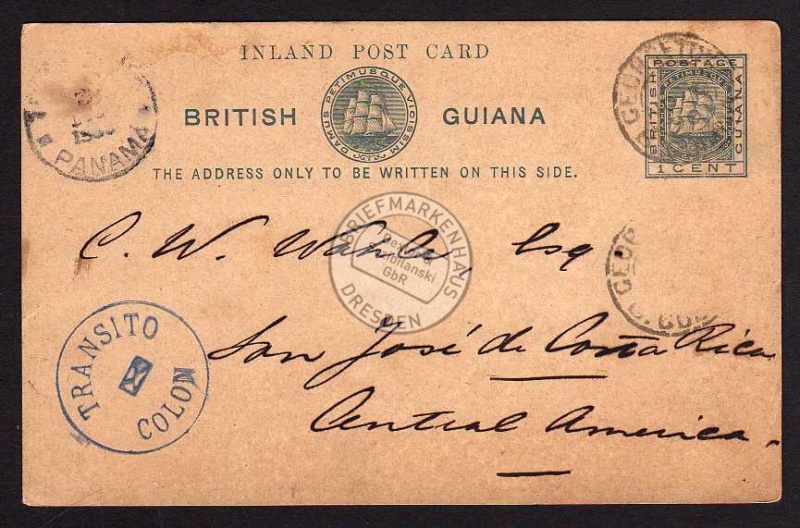 INLAND POST CARD
BRITISH GUIANA
DAMUS PETIMUSQUE VICISSIM
THE ADDRESS ONLY TO BE WRITTEN ON THIS SIDE.
BRITISH
POSTAGE
PETIMUSQUE
GUIANA
1 CENT
GEORGETOWN
PANAMA
C. W. Esq
San José de Costa Rica
Central America.
TRANSITO
COLON
GEOR
BRIEFMARKENHAUS
GbR
DRESDEN